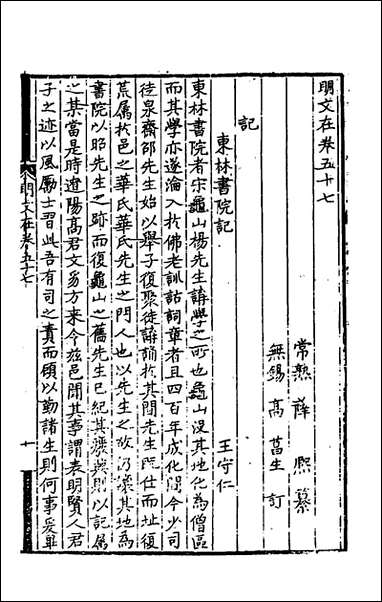 明文在卷五十七
常熟薛熙纂
無錫高菖生訂
記
東林書院記
王守仁
東林書院者宋龜山楊先生講學之所也龜山沒其地化為僧區
而其學亦遂淪入於佛老訓詁詞章者且四百年成化間今少司
徒泉齋邵先生始以舉子復聚徒講誦於其間先生既仕而址復
荒屬於邑之華氏華氏先生之門人也以先生之故仍讓其地為
書院以昭先生之跡而復龜山之舊先生已紀其廢興則以記屬
之某當是時遼陽高君文豸方來令茲邑聞其事謂表明賢人君
子之迹以風勵士習此吾有司之責而顧以勤諸生則何事爰畢
明文在卷五十七
十